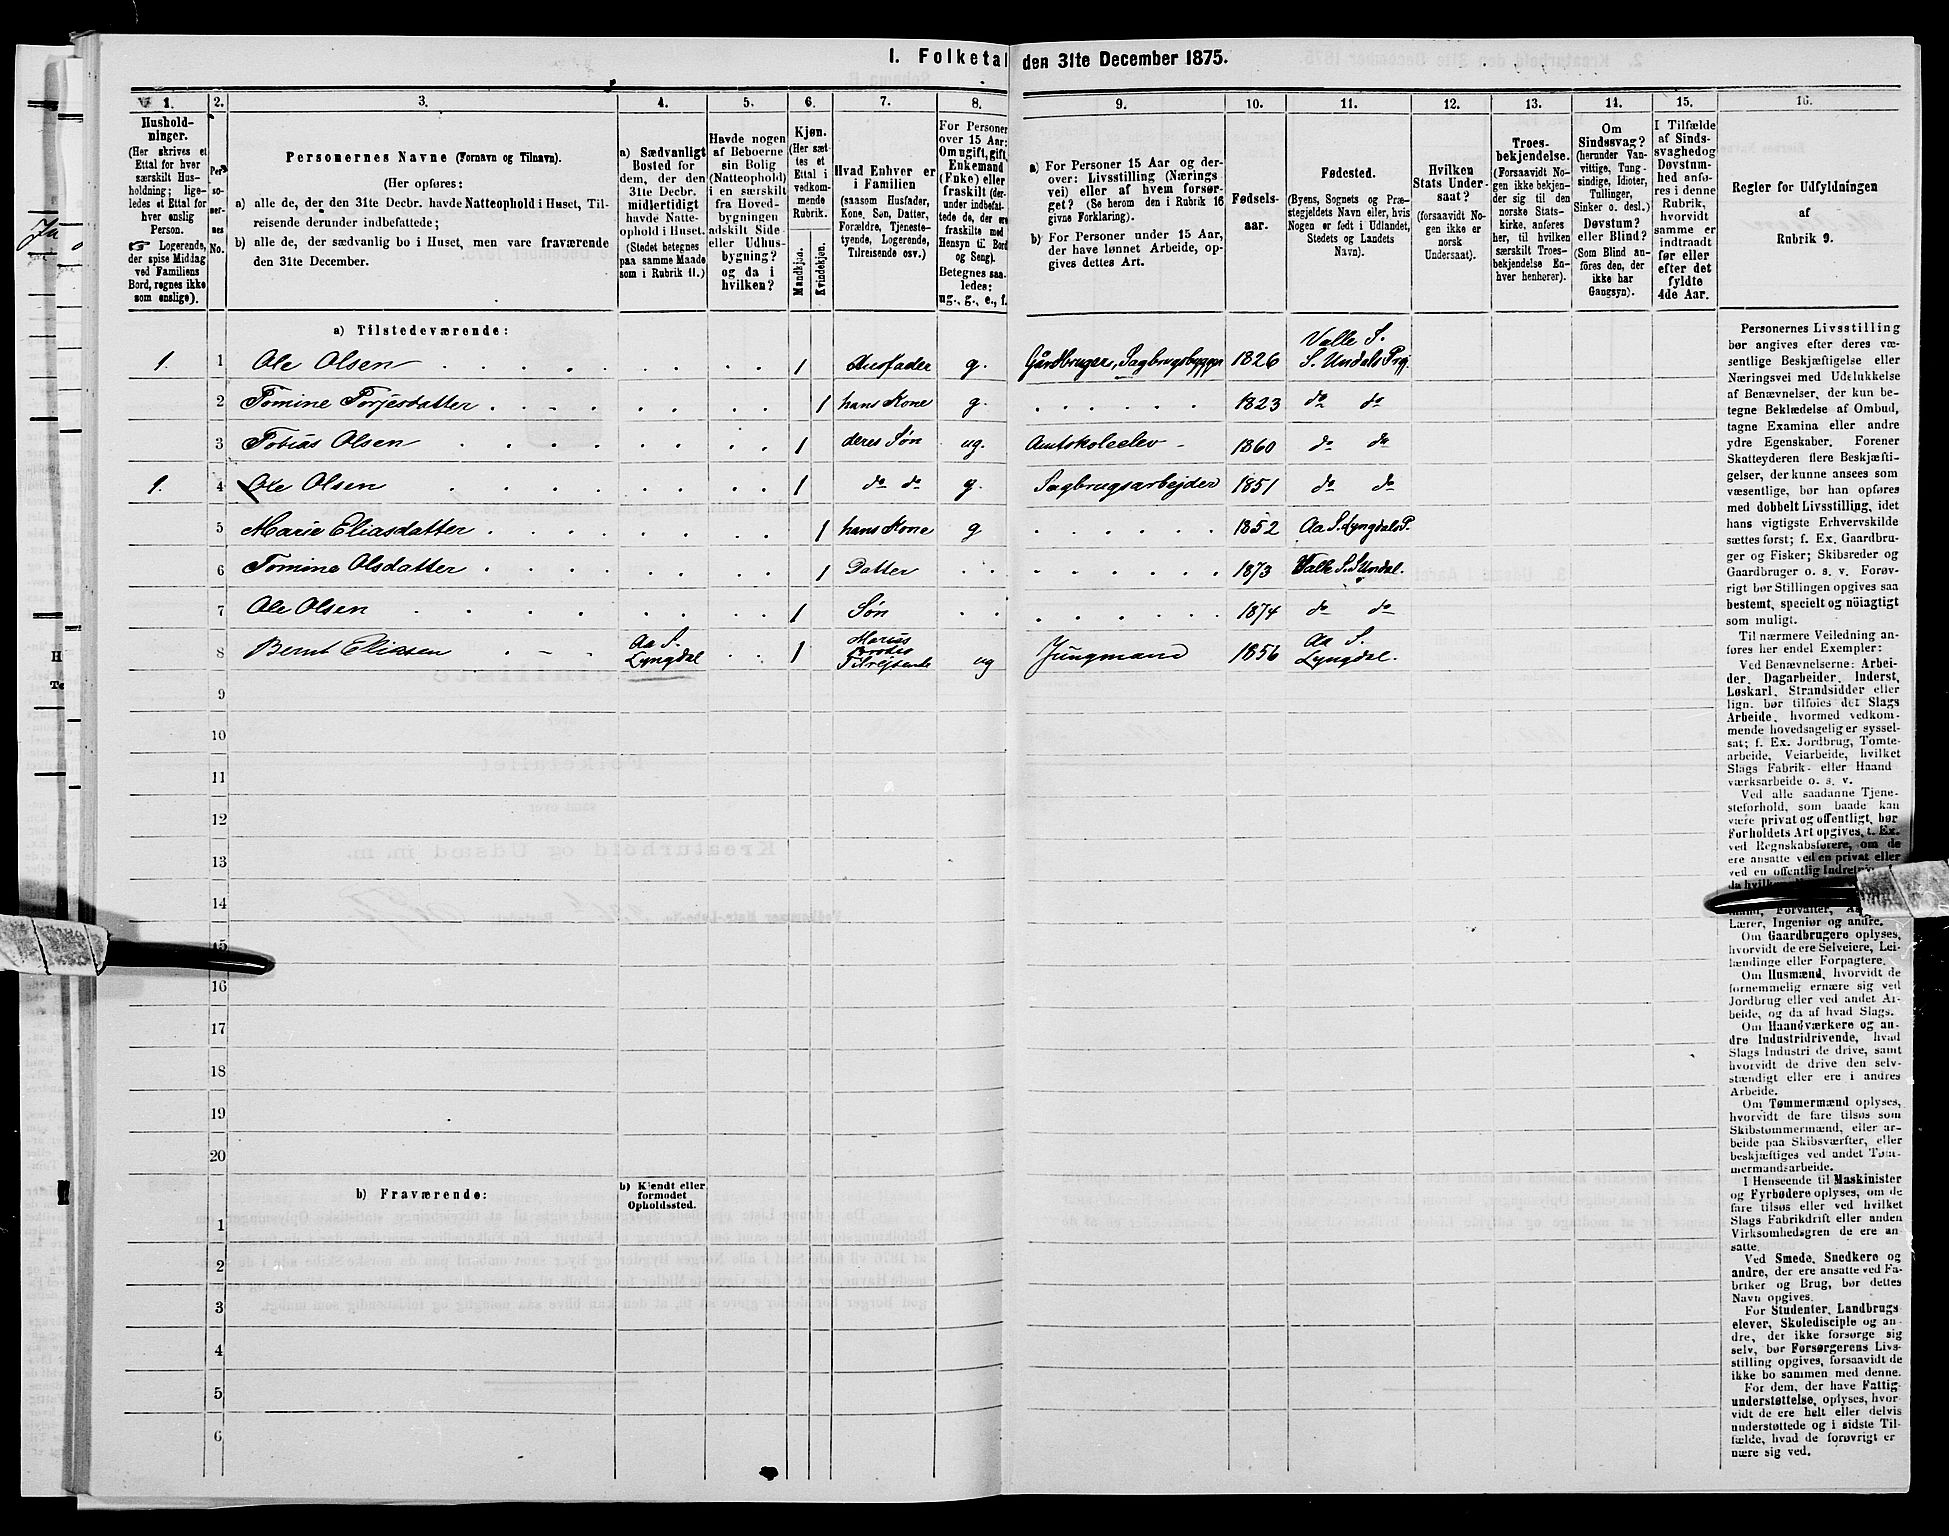 1. Folketal den 31te December 1875.
1. 2. 3. 4. 5. 6. 7. 8. 9. 10. 11. 12. 13. 14. 15. 16.
Hushold-
ninger.
(Her skrives et
Ettal for hver
særskilt Hus-
holdning; lige-
ledes et Ettal for
hver enslig
Person.
☞ Logerende,
der spise Middag
ved Familiens
Bord, regnes ikke
som enslige).
Per-
so-
ner-
nes
No.
Personernes Navne (Fornavn og Tilnavn).
(Her opføres:
a) alle de, der den 31te Decbr. havde Natteophold i Huset, Til-
reisende derunder indbefattede;
b) alle de, der sædvanlig bo i Huset, men vare fraværende
den 31te December.
a) Sædvanligt
Bosted for
dem, der den
31te Decbr.
midlertidigt
havde Natte-
ophold i Huset.
(Stedet betegnes
paa samme Maade
som i Rubrik 11.)
Havde nogen
af Beboerne
sin Bolig
(Natteophold)
i en særskilt
fra Hoved-
bygningen
adskilt Side-
eller Udhus-
bygning?
og da i
hvilken?
Kjøn.
(Her sæt-
tes et
Ettal i
vedkom-
mende
Rubrik.
Mandkjøn.
Kvindekjøn.
Hvad Enhver er
i Familien
(saasom Husfader,
Kone, Søn, Datter,
Forældre, Tjeneste-
tyende, Logerende,
Tilreisende osv.)
For Personer
over 15 Aar:
Om ugift, gift,
Enkemand
(Enke) eller
fraskilt (der-
under indbefat-
tede de, der ere
fraskilte med
Hensyn til Bord
og Seng).
Betegnes saa-
ledes:
ug., g., e., f.
a) For Personer 15 Aar og der-
over: Livsstilling (Nærings-
vei) eller af hvem forsør-
get? (Se herom den i Rubrik 16
givne Forklaring).
b) For Personer under 15 Aar,
der have lønnet Arbeide, op-
gives dettes Art.
Fødsels-
aar.
Fødested.
(Byens, Sognets og Præ-
stegjeldets Navn eller, hvis
Nogen er født i Udlandet,
Stedets og Landets
Navn).
Hvilken
Stats Under-
saat?
(forsaavidt No-
gen ikke er
norsk
Undersaat).
Troes-
bekjendelse.
(Forsaavidt No-
gen ikke bekjen-
der sig til den
norske Stats-
kirke, anføres
her, til hvilken
særskilt Troes-
bekjendelse En-
hver henhører).
Om
Sindssvag?
(herunder Van-
vittige, Tung-
sindige, Idioter,
Tullinger,
Sinker o. desl.)
Døvstum?
eller Blind?
(Som Blind an-
føres den, der
ikke har
Gangsyn).
I Tilfælde
af Sinds-
svaghed og
Døvstum-
hed anfø-
res i denne
Rubrik,
hvorvidt
samme er
indtraadt
før eller
efter det
fyldte
4de Aar.
Regler for Udfyldningen
af
Rubrik 9.
a) Tilstedeværende:
1. 1 Ole Olsen 1 Husfader g. Gårdbruger, Sagbrugsbygger 1826 Valle S. S. Undals Prgj.
2 Tomine Torjesdatter 1 hans Kone g. 1823 do do
3 Tobias Olsen 1 deres Søn ug. Amtskoleelev 1860 do do
1. 4 Ole Olsen 1 do do g. Sagbrugsarbejder 1851 do do
5 Marie Eliasdatter 1 hans Kone g 1852 Aa S. Lyngdals P.
6 Tomine Olsdatter 1 Datter 1873 Valle S. S. Undal.
7 Ole Olsen 1 Søn 1874 do do
8 Bernt Eliasen Aa S. Lyngdal 1 Tilrejsende ug Jungmand 1856 Aa S. Lyngdal.
9
10
11
12
13
14
15
16
17
18
19
20
b) Fraværende:
b) Kjendt eller
formodet
Opholdssted.
1
2
3
4
5
6
Personernes Livsstilling
bør angives efter deres væ-
sentlige Beskjæftigelse eller
Næringsvei med Udelukkelse
af Benævnelser, der kun be-
tegne Beklædelse af Ombud,
tagne Examina eller andre
ydre Egenskaber. Forener
Skatteyderen flere Beskjæfti-
gelser, der kunne ansees som
væsentlige, bør han opføres
med dobbelt Livsstilling, idet
hans vigtigste Erhvervskilde
sættes først; f. Ex. Gaardbru-
ger og Fisker; Skibsreder og
Gaardbruger o. s. v. Forøv-
rigt bør Stillingen opgives saa
bestemt, specielt og nöiagtigt
som muligt.
Til nærmere Veiledning an-
føres her endel Exempler:
Ved Benævnelserne: Arbei-
der, Dagarbeider, Inderst,
Løskarl, Strandsidder eller
lign. bør tilføies det Slags
Arbeide, hvormed vedkom-
mende hovedsagelig er syssel-
sat; f. Ex. Jordbrug, Tomte-
arbeide, Veiarbeide, hvilket
Slags Fabrik- eller Haand-
værksarbeide o. s. v.
Ved alle saadanne Tjene-
steforhold, som baade kan
være privat og offentligt, bør
Forholdets Art opgives, t. Ex.
ved Regnskabsførere, om de
ere ansatte ved en privat eller
ved en offentlig
Lærer, Ingeniør og andre.
Om Gaardbrugere oplyses,
hvorvidt de ere Selveiere, Lei-
lændinge eller Forpagtere.
Om Husmænd, hvorvidt de
fornemmelig ernære sig ved
Jordbrug eller ved andet Ar-
beide, og da af hvad Slags.
Om Haandværkere og an-
dre Industridrivende, hvad
Slags Industri de drive, samt
hvorvidt de drive den selv-
stændigt eller ere i andres
Arbeide.
Om Tømmermænd oplyses,
hvorvidt de fare tilsøs som
Skibstømmermænd, eller ar-
beide paa Skibsværfter, eller
beskjæftiges ved andet Tøm-
mermandsarbeide.
I Henseende til Maskinister
og Fyrbødere oplyses, om de
fare tilsøs eller ved hvilket
Slags Fabrikdrift eller anden
Virksomhedsgren de ere an-
satte.
Ved Smede, Snedkere og
andre, der ere ansatte ved Fa-
briker og Brug, bør dettes
Navn opgives.
For Studenter, Landbrugs-
elever, Skoledisciple og an-
dre, der ikke forsørge sig
selv, bør Forsørgerens Livs-
stilling opgives, forsaavidt de
ikke bo sammen med denne.
For dem, der have Fattig-
understøttelse, oplyses, hvor-
vidt de ere helt eller delvis
understøttede og i sidste Til-
fælde, hvad de forøvrigt er-
nære sig ved.